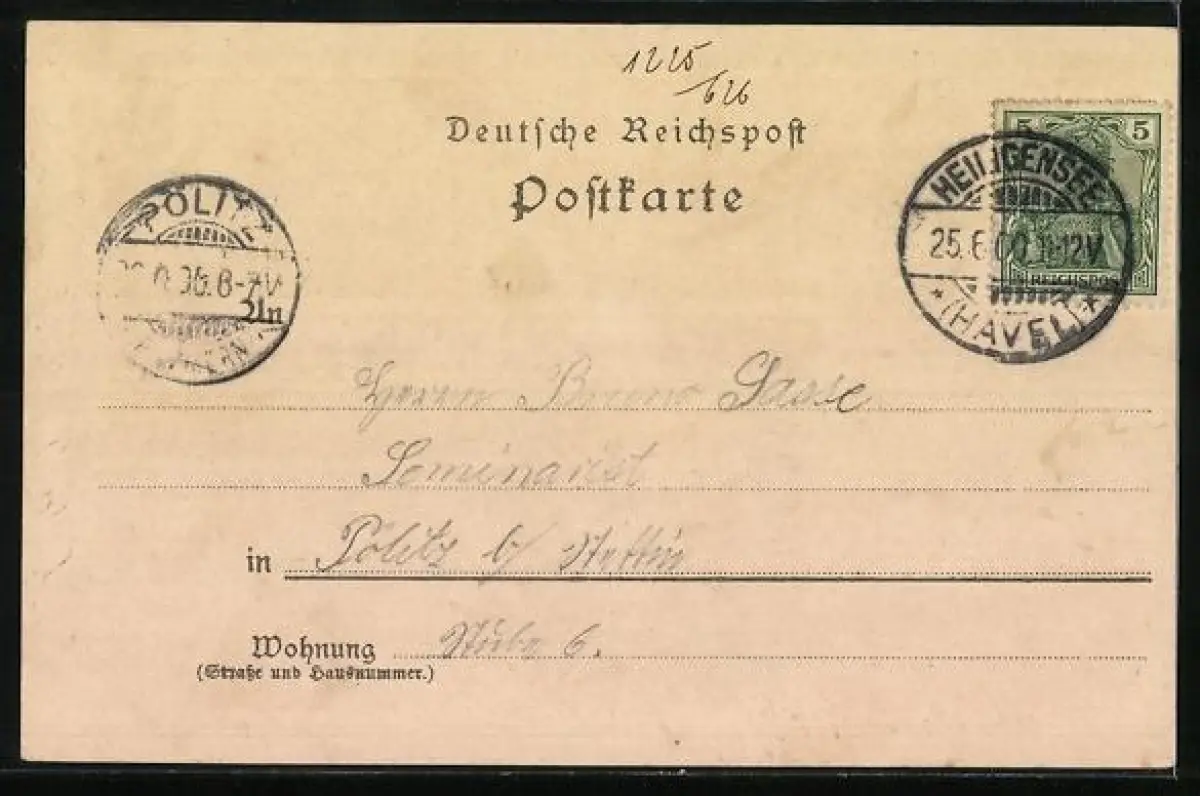 1225
/626
Deutſche Reichspoſt
Poſtkarte
5 5
REICHSPOST
HEILIGENSEE
25.6.00 11-12V
*(HAVEL)*
PÖLITZ
6-7V
Herrn Bruno Sasse
Seminarist
in Pölitz b/ Stettin
Wohnung Stube 6.
(Straße und Hausnummer.)